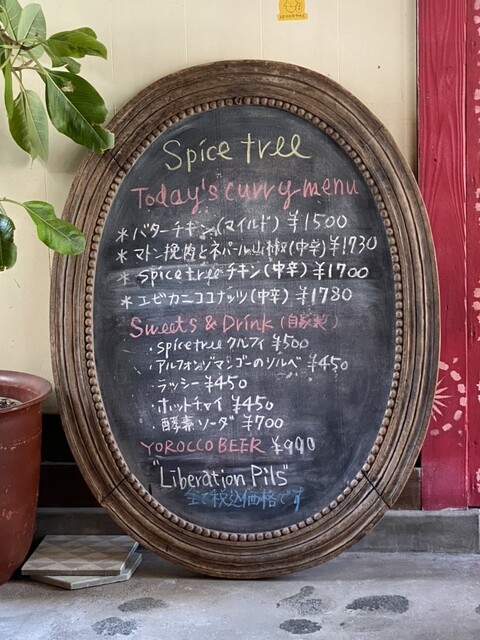 Spice tree
Today's curry menu
* バターチキン(マイルド) ¥1500
* マトン挽肉とネパール山椒(中辛) ¥1730
* spice tree チキン(中辛) ¥1700
* エビカニココナッツ(中辛) ¥1780
Sweets & Drink (自家製)
・spice tree クルフィ ¥500
・アルフォンゾマンゴーのソルベ ¥450
・ラッシー ¥450
・ホットチャイ ¥450
・酵素ソーダ ¥700
YOROCCO BEER ¥990
"Liberation Pils"
全て税込価格です